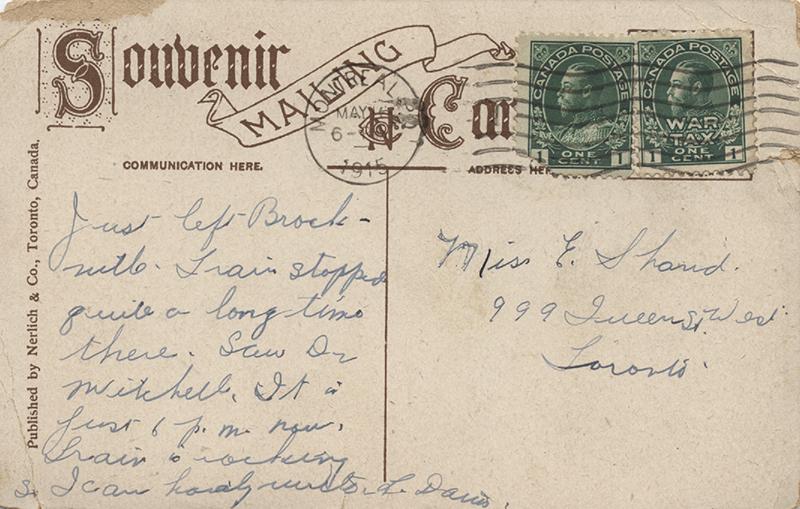 Souvenir
MAILING
Car
MONTREAL
MAY
6-
1915
CANADA POSTAGE
1 ONE CENT 1
CANADA POSTAGE
WAR
TAX
1 ONE CENT 1
COMMUNICATION HERE.
ADDRESS HER
Published by Nerlich & Co., Toronto, Canada.
Just left Brock-
ville. Train stopped
quite a long time
there. Saw Dr
Mitchell. It is
just 6 p.m. now.
Train is rocking
so I can hardly write L. Davis.
Miss E. Shand.
999 Queen St West
Toronto.